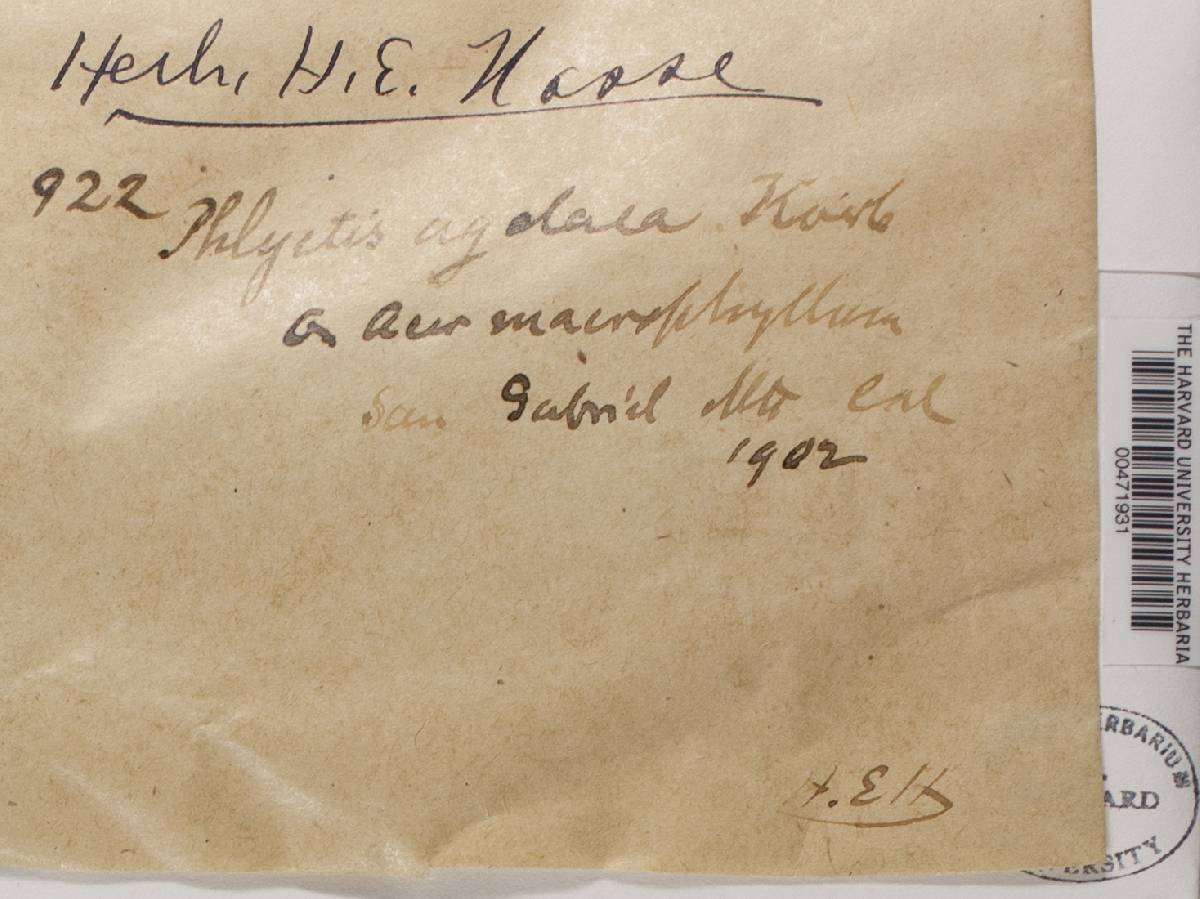 Herb. H.E. Hasse
922 Phlyctis agelaea Koerb
on Acer macrophyllum
San Gabriel Mts Cal
1902
H.E.H
THE HARVARD UNIVERSITY HERBARIA
00471931
ERBARIUM
ARD
VERSITY